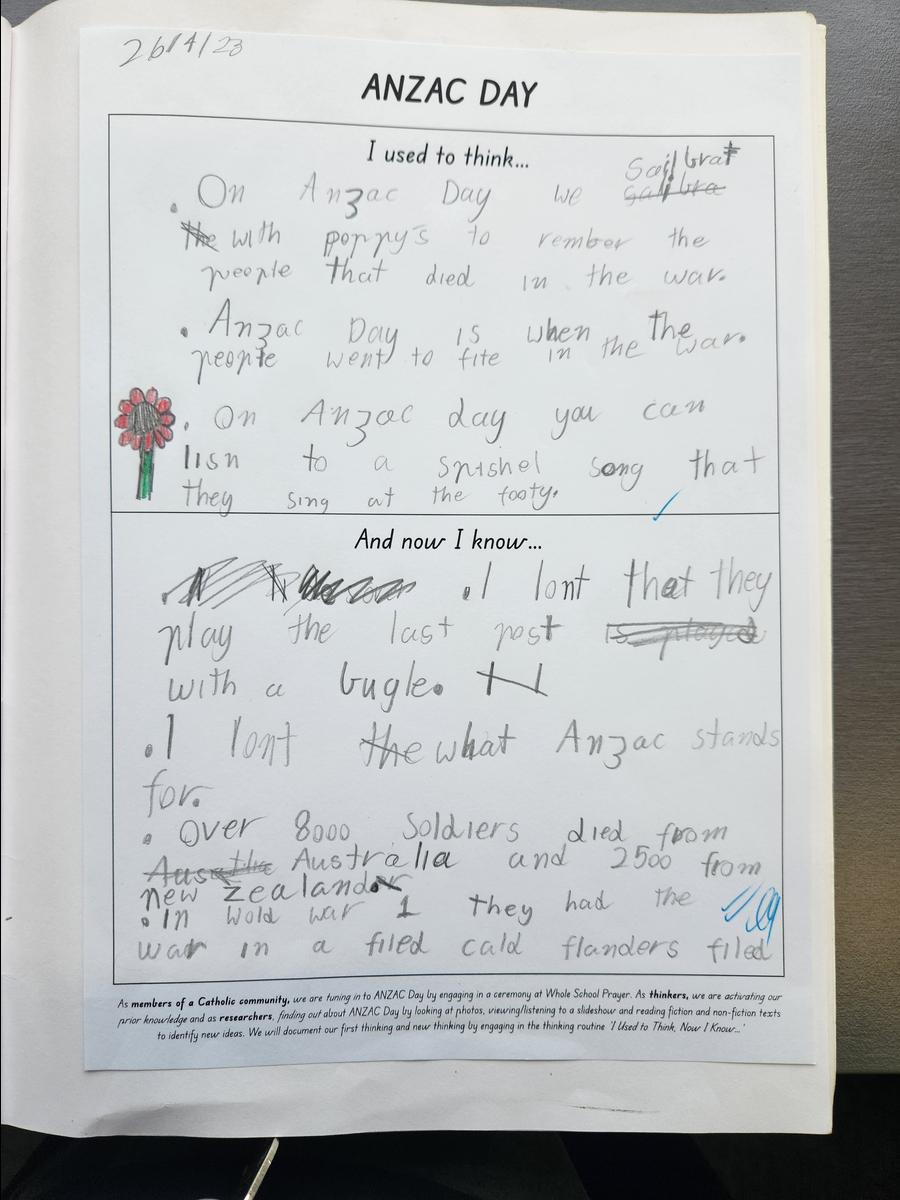 26/4/23
ANZAC DAY
I used to think...
Sailbrat
. On Anzac Day we salibra
the with poppy's to rember the
people that died in the war.
. Anzac Day is when the
people went to fite in the war.
. On Anzac day you can
lisn to a spishel song that
they sing at the footy.
And now I know...
. I lont that they
play the last post is played
with a bugle.
. I lont the what Anzac stands
for.
. Over 8000 Soldiers died from
Australia and 2500 from
new zealand
. In wold war 1 they had the
war in a filed cald flanders filed
As members of a Catholic community, we are tuning in to ANZAC Day by engaging in a ceremony at Whole School Prayer. As thinkers, we are activating our
prior knowledge and as researchers, finding out about ANZAC Day by looking at photos, viewing/listening to a slideshow and reading fiction and non-fiction texts
to identify new ideas. We will document our first thinking and new thinking by engaging in the thinking routine 'I Used to Think, Now I Know...'